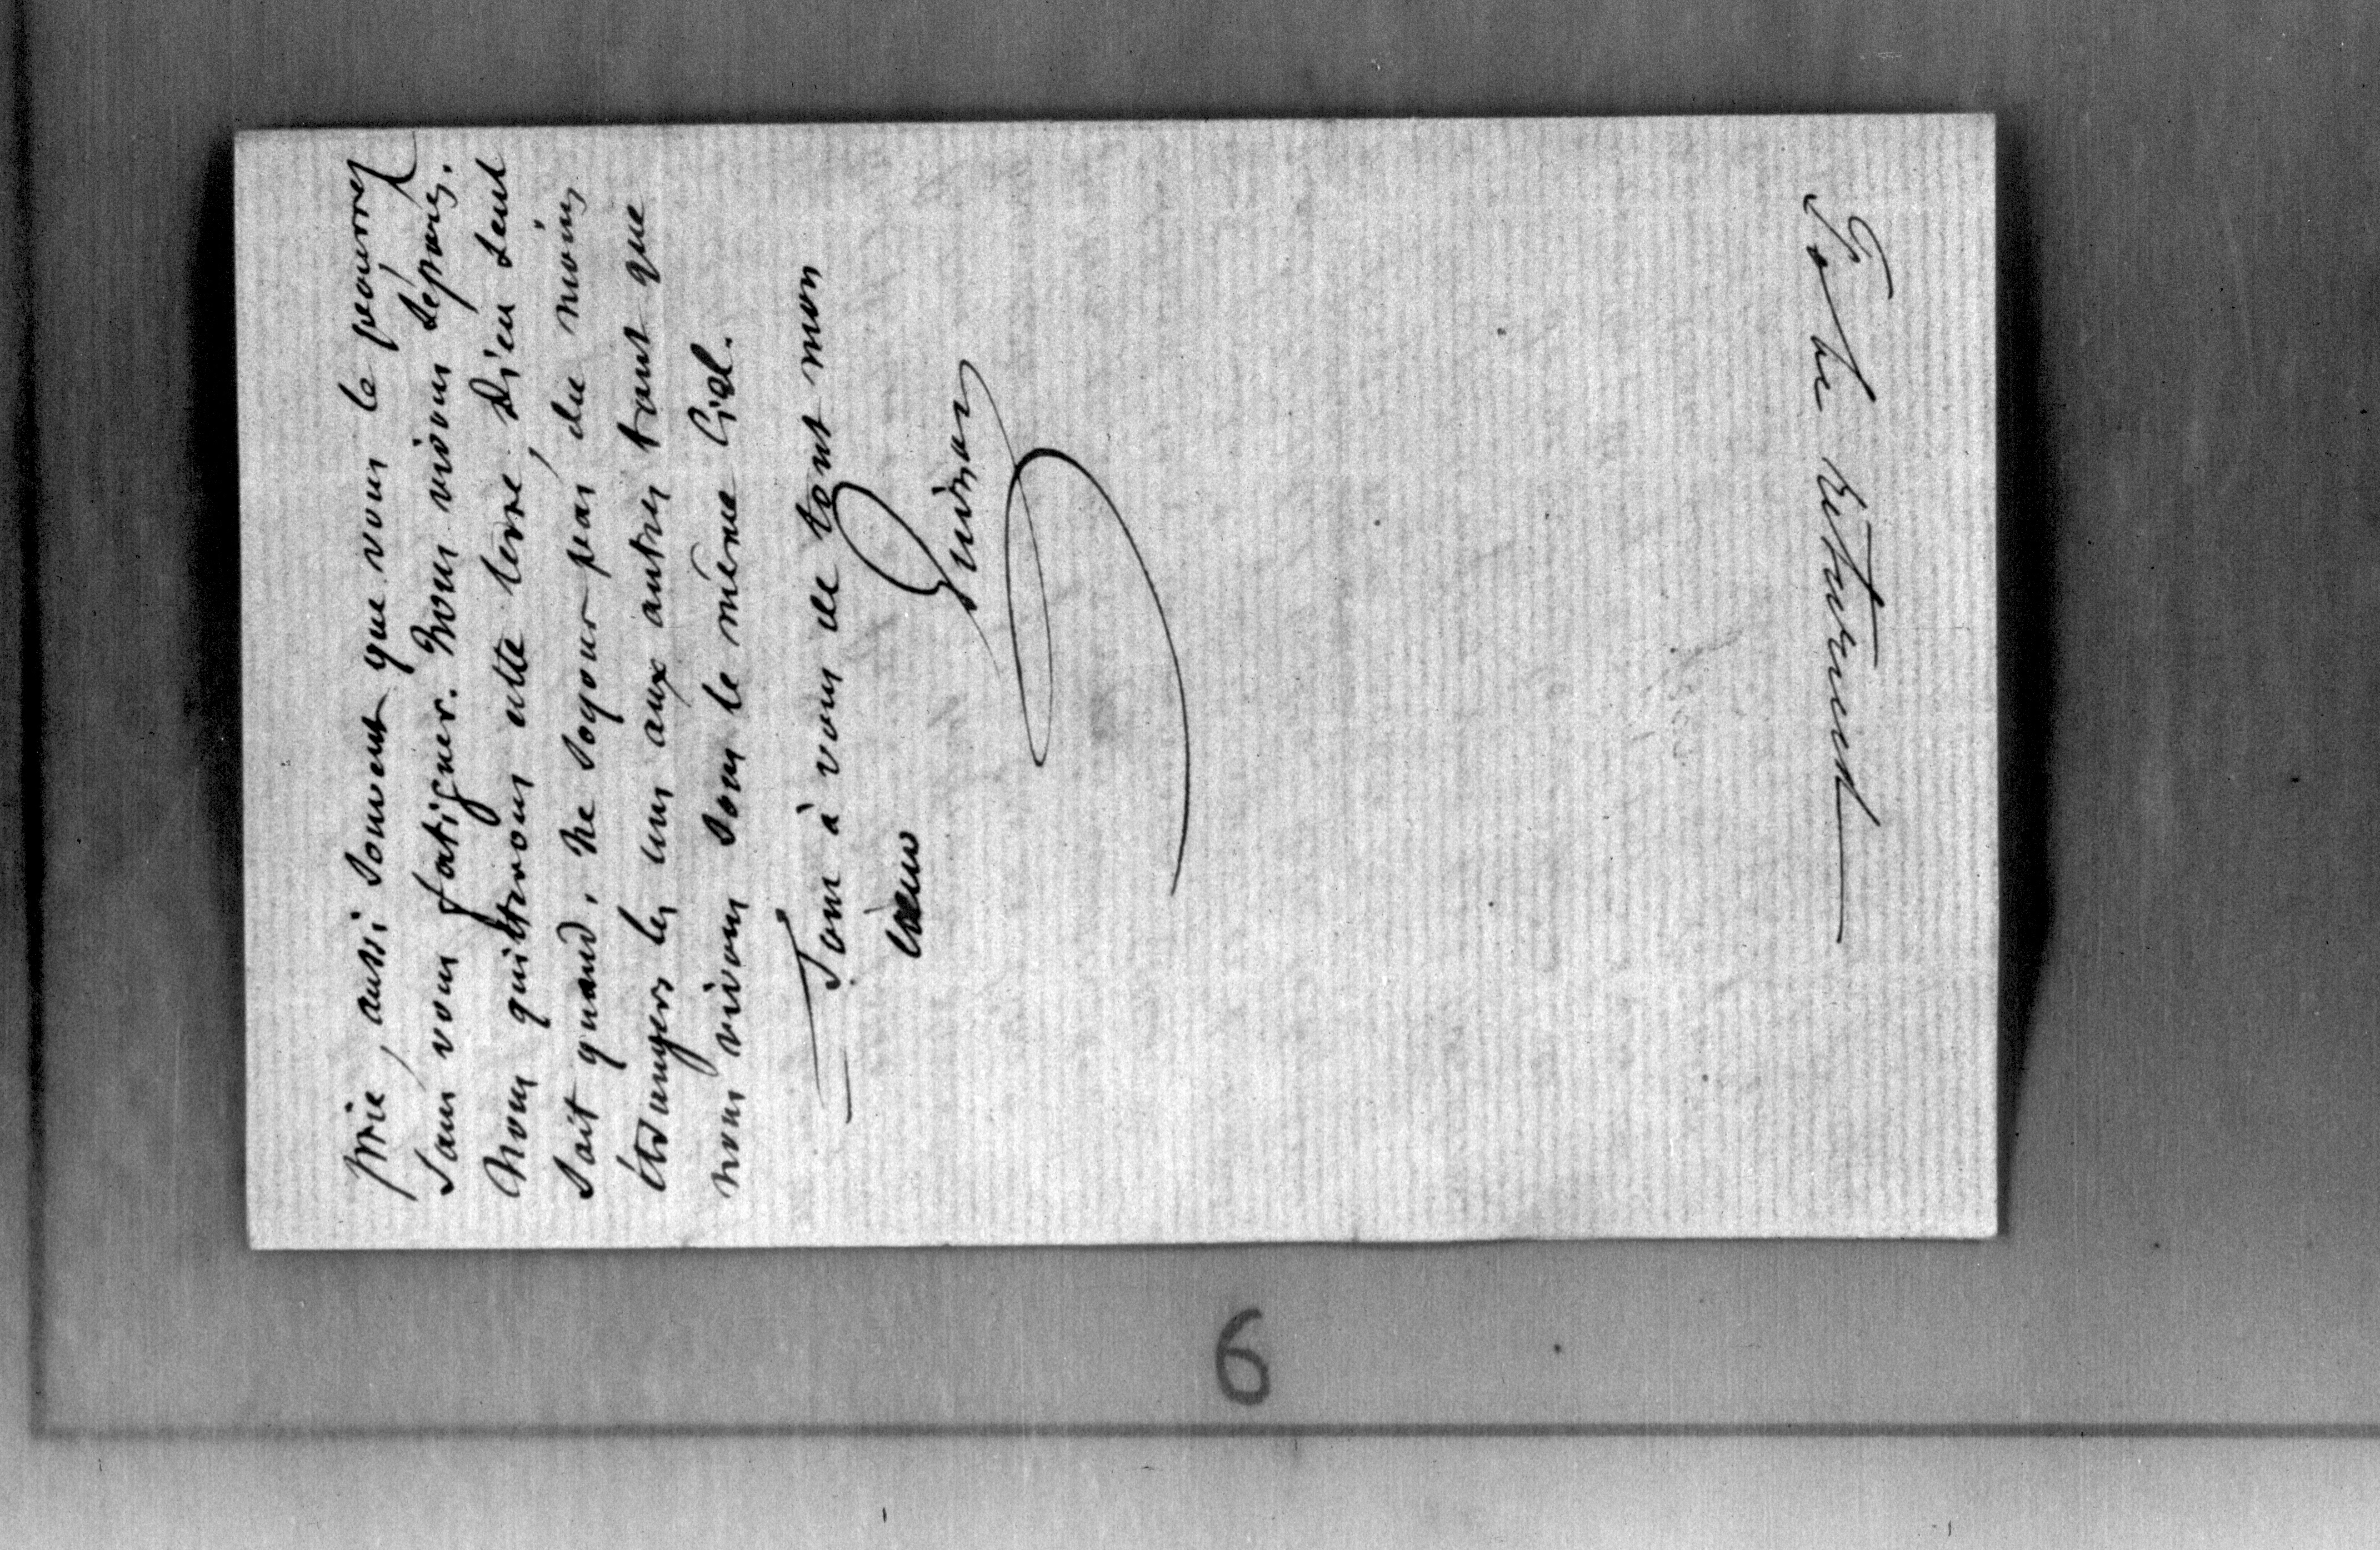 prie, aussi souvent que vous le pourrez
sans vous fatiguer. Nous vivons séparés.
Nous quitterons cette terre, Dieu seul
sait quand. Ne soyons pas, du moins
étrangers les uns aux autres tant que
nous vivons sous le même Ciel.
Tout à vous de tout mon
coeur
Guizot
To be returned
6